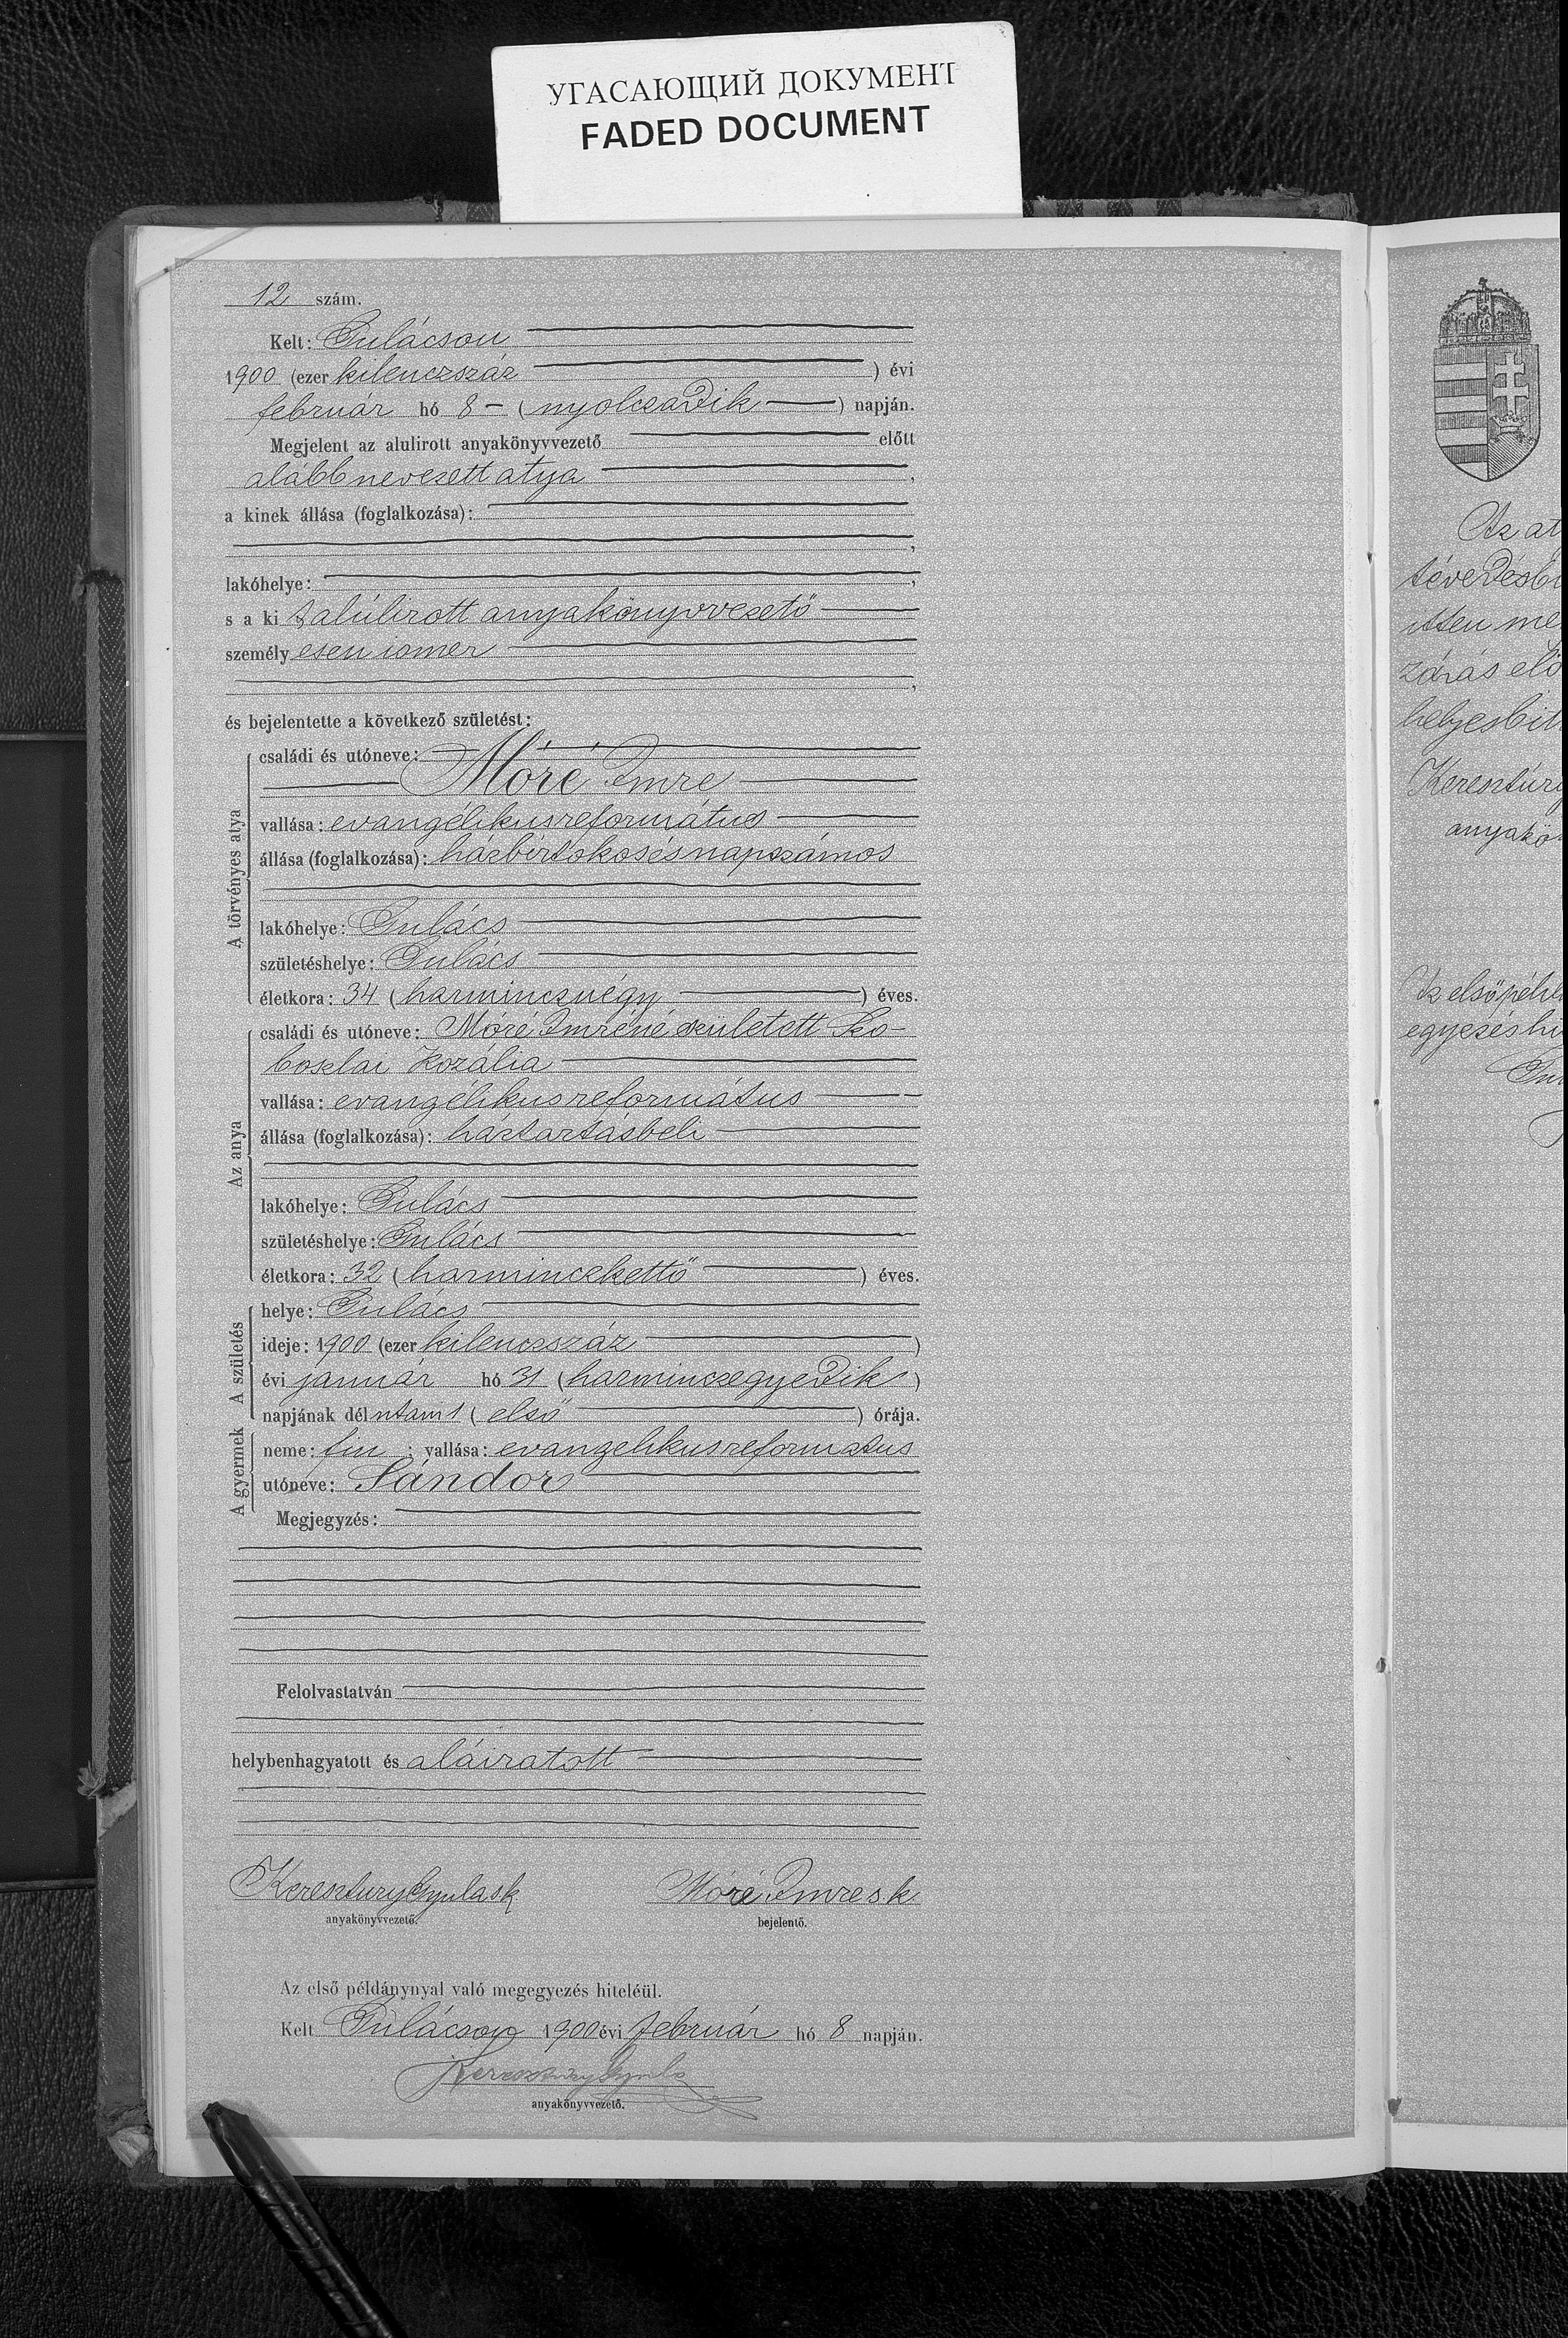 УГАСАЮЩИЙ ДОКУМЕНТ
FADED DOCUMENT
12 szám.
Kelt: Gulácson
1900 (ezer kilenczszáz ) évi
február hó 8 - (nyolczadik ) napján.
Megjelent az alulirott anyakönyvvezető előtt
alább nevezett atya ,
a kinek állása (foglalkozása):
,
lakóhelye: ,
s a ki t alúlirott anyakönyvvezető
személy esen ismer
,
és bejelentette a következő születést:
A törvényes atya
családi és utóneve:
Móré Imre
vallása: evangélikus református
állása (foglalkozása): házbirtokos és napszámos
lakóhelye: Gulács
születéshelye: Gulács
életkora: 34 (harmincznégy ) éves.
Az anya
családi és utóneve: Móré Imréné született Szo-
boszlai Rozália
vallása: evangélikus református
állása (foglalkozása): háztartásbeli
lakóhelye: Gulács
születéshelye: Gulács
életkora: 32 (harminczkettő ) éves.
A születés
helye: Gulács
ideje: 1900 (ezer kilenczszáz )
évi január hó 31 (harminczegyedik )
napjának délutani 1 ( első ) órája.
A gyermek
neme: fiu ; vallása: evangelikus reformatus
utóneve: Sándor
Megjegyzés:
Felolvastatván
helybenhagyatott és aláiratott
Keresztury Gyula sk Móré Imre sk
anyakönyvvezető. bejelentő.
Az első példánynyal való megegyezés hiteléül.
Kelt Gulácson 1900 évi február hó 8 napján.
Keresztury Gyula
anyakönyvvezető.
Az at
tévedésb
itten me
zárás elő
helyesbit
Keresztury
anyakö
Az első péld
egyezés hi
Gu